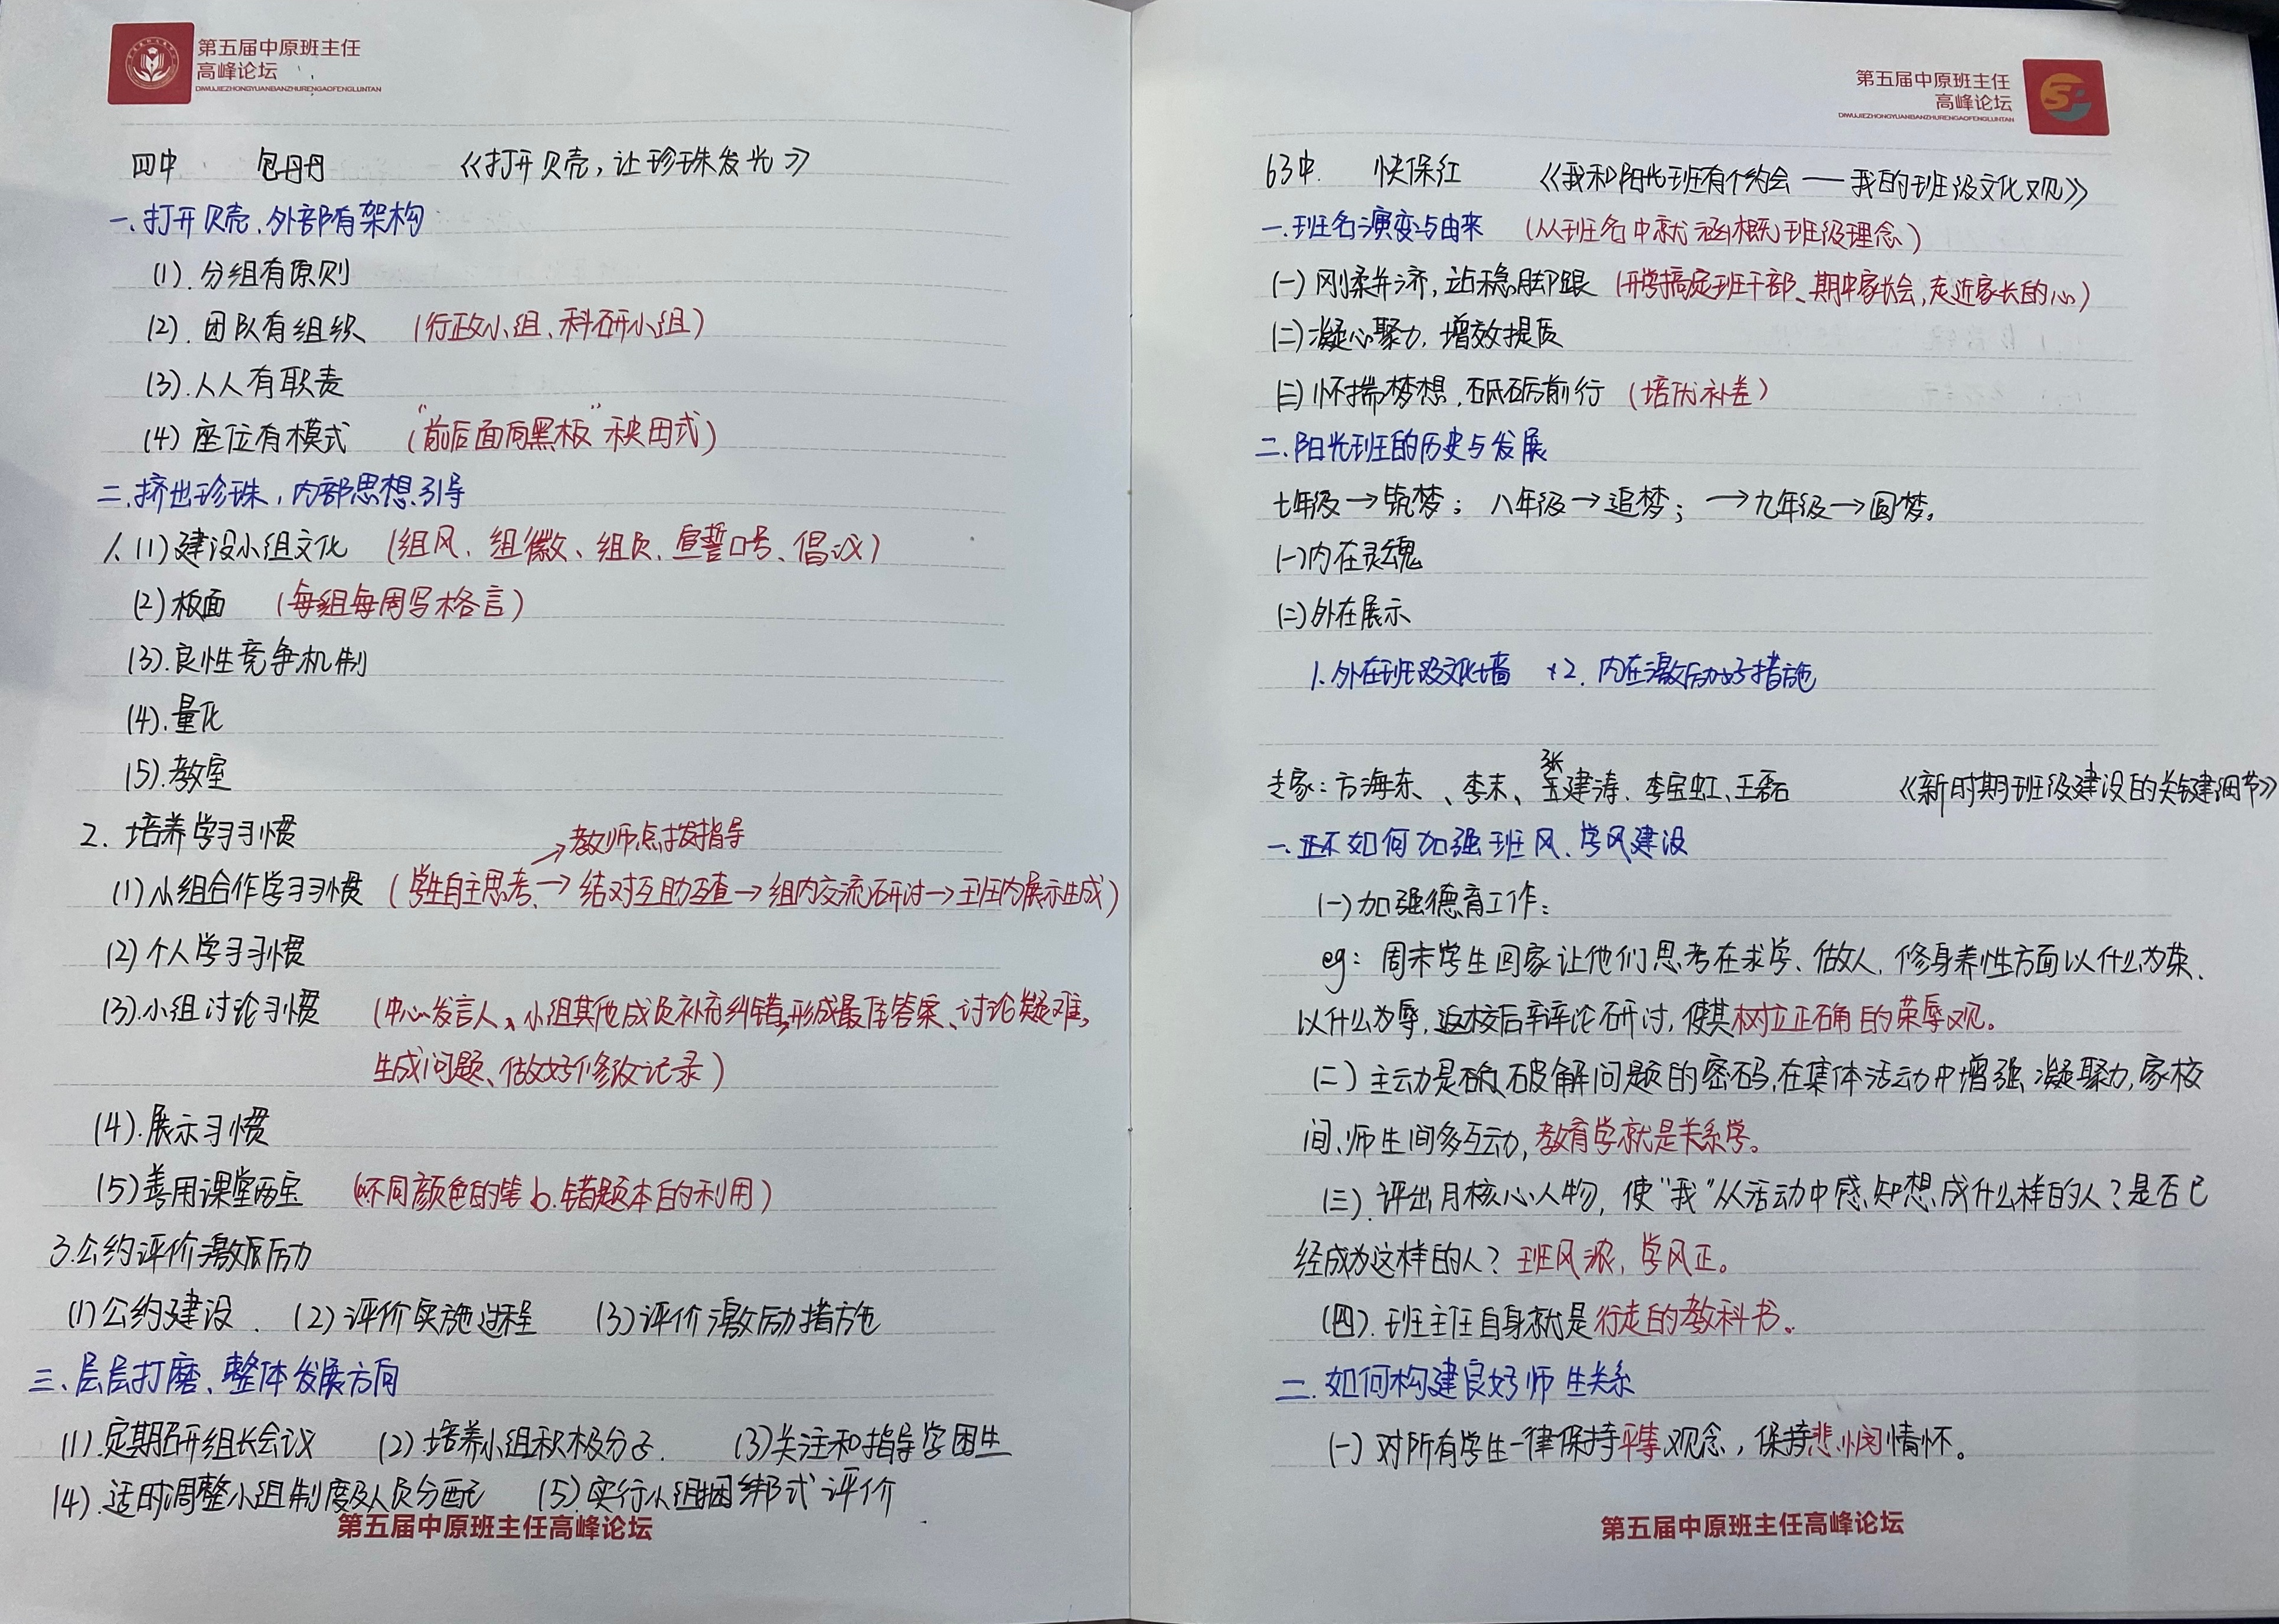 第五届中原班主任
高峰论坛
DIWUJIEZHONGYUANBANZHURENGAOFENGLUNTAN
四中 包丹丹 《打开贝壳,让珍珠发光》
一.打开贝壳.外部有架构
(1).分组有原则
(2).团队有组织 (行政小组、科研小组)
(3).人人有职责
(4)座位有模式 (“前后面向黑板”秧田式)
二.挤出珍珠,内部思想引导
1.(1)建设小组文化 (组风、组徽、组员、宣誓口号、倡议)
(2)板面 (每组每周写格言)
(3).良性竞争机制
(4).量化
(5).教室
2.培养学习习惯 →教师点拨指导
(1)小组合作学习习惯 (学生自主思考→结对互助互查→组内交流研讨→班内展示生成)
(2)个人学习习惯
(3).小组讨论习惯 (中心发言人、小组其他成员补充纠错,形成最佳答案、讨论疑难,
生成问题、做好修改记录)
(4).展示习惯
(5)善用课堂两宝 (不同颜色的笔 b.错题本的利用)
3.公约评价激励
(1)公约建设. (2)评价实施过程 (3)评价激励措施
三、层层打磨、整体发展方向
(1).定期召开组长会议 (2).培养小组积极分子. (3)关注和指导学困生
(4).适时调整小组制度及人员分配 (5).实行小组捆绑式评价
第五届中原班主任高峰论坛
第五届中原班主任
高峰论坛
DIWUJIEZHONGYUANBANZHURENGAOFENGLUNTAN
63中. 快保红 《我和阳光班有个约会——我的班级文化观》
一.班名演变与由来 (从班名中就涵概班级理念)
(一)刚柔并济,站稳脚跟 (开学搞定班干部、期中家长会,走近家长的心)
(二)凝心聚力,增效提质
(三)怀揣梦想.砥砺前行 (培优补差)
二.阳光班的历史与发展
七年级→筑梦; 八年级→追梦; →九年级→圆梦。
(一)内在灵魂
(二)外在展示
1.外在班级文化墙 2.内在激励好措施
张
专家:方海东、李末、建涛、李宝虹、王磊 《新时期班级建设的关键细节》
一.如何加强班风、学风建设
(一)加强德育工作:
eg:周末学生回家让他们思考在求学、做人,修身养性方面以什么为荣、
以什么为辱,返校后辩论研讨,使其树立正确的荣辱观。
(二)主动是破解问题的密码,在集体活动中增强凝聚力,家校
间、师生间多互动,教育学就是关系学。
(三).评出月核心人物,使“我”从活动中感知想成什么样的人?是否已
经成为这样的人?班风浓,学风正。
(四).班主任自身就是行走的教科书。
二.如何构建良好师生关系
(一)对所有学生一律保持平等观念,保持悲悯情怀。
第五届中原班主任高峰论坛